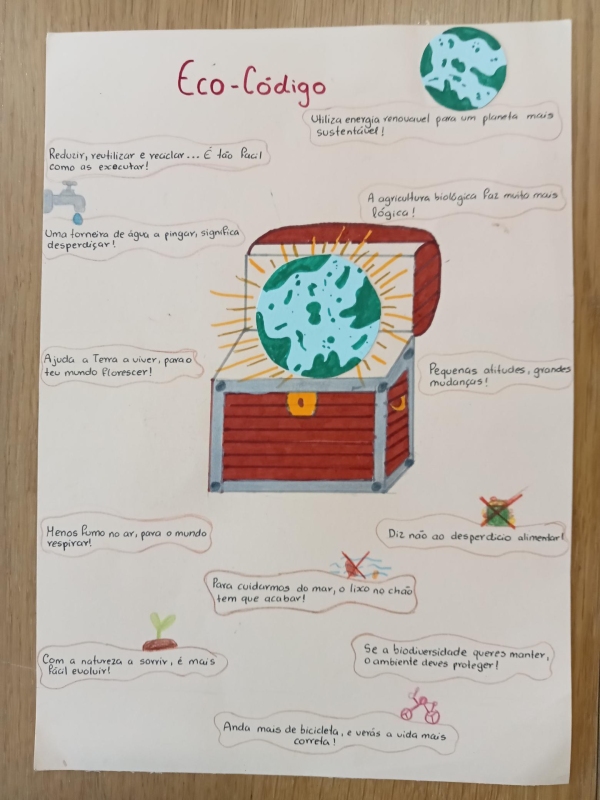 Eco-Código
Utiliza energia renovavel para um planeta mais
sustentável!
Reduzir, reutilizar e reciclar... É tão fácil
como as executar!
A agricultura biológica faz muito mais
lógica!
Uma torneira de água a pingar, significa
desperdiçar!
Ajuda a Terra a viver, para o
teu mundo florescer!
Pequenas atitudes, grandes
mudanças!
Menos fumo no ar, para o mundo
respirar!
Diz não ao desperdício alimentar!
Para cuidarmos do mar, o lixo no chão
tem que acabar!
Com a natureza a sorrir, é mais
fácil evoluir!
Se a biodiversidade queres manter,
o ambiente deves proteger!
Anda mais de bicicleta, e verás a vida mais
correta!